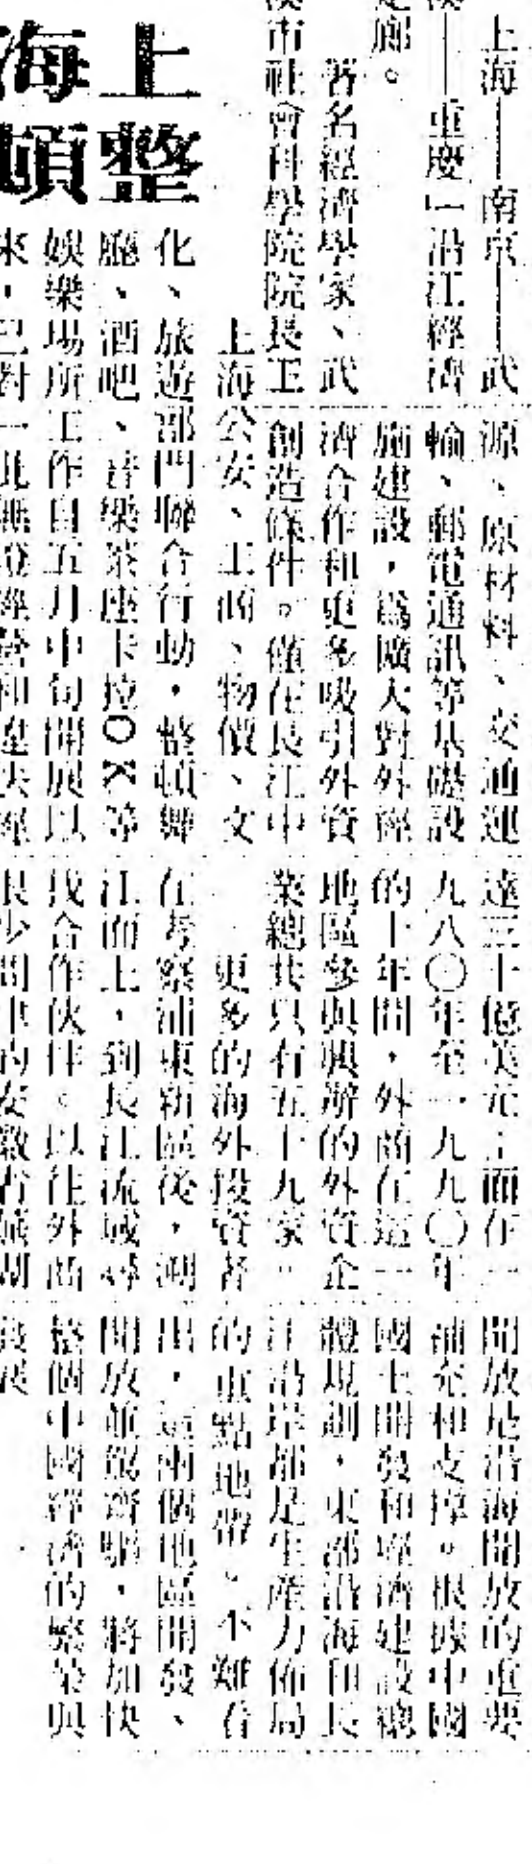 上海——南京——武
漢——重慶」沿江經濟
走廊。
著名經濟學家、武
漢市社會科學院院長王
源、原材料、交通運
輸、郵電通訊等基礎設
施建設，爲擴大對外經
濟合作和更多吸引外資
創造條件。僅在長江中
達三十億美元；而在一
九八〇年至一九九〇年
的十年間，外商在這一
地區參與興辦的外資企
業總共只有五十九家。
更多的海外投資者
在考察浦東新區後，溯
江而上，到長江流域尋
找合作伙伴。以往外商
很少問津的安徽省蕪湖
開放是沿海開放的重要
補充和支撐。根據中國
國土開發和經濟建設總
體規劃，東部沿海和長
江沿岸都是生產力佈局
的重點地帶。不難看
出，這兩個地區開發、
開放並駕齊驅，將加快
整個中國經濟的繁榮與
發展
上整
海頓
上海公安、工商、物價、文
化、旅遊部門聯合行動，整頓舞
廳、酒吧、音樂茶座卡拉OK等
娛樂場所工作自五月中旬開展以
來，已對一批無證經營和違法經